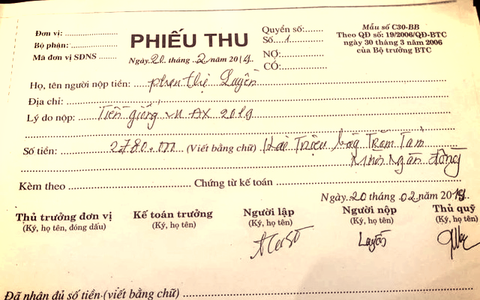 Đơn vị:
Bộ phận:
Mã đơn vị SDNS
PHIẾU THU
Ngày 20 tháng 2 năm 2014
Quyển số:
Số 1
NỢ:
CÓ:
Mẫu số C30-BB
Theo QĐ số: 19/2006/QĐ-BTC
ngày 30 tháng 3 năm 2006
của Bộ trưởng BTC
Họ, tên người nộp tiền: phan thị Luyến
Địa chỉ:
Lý do nộp: Tiền giống ĐX
Số tiền: 2780.000 (Viết bằng chữ) Hai Triệu bảy Trăm Tám
Mươi Ngàn đồng
Kèm theo Chứng từ kế toán
Ngày 20 tháng 02 năm
Thủ trưởng đơn vị Kế toán trưởng Người lập Người nộp Thủ quỹ
(Ký, họ tên, đóng dấu) (Ký, họ tên) (Ký, họ tên) (Ký, họ tên) (Ký, họ tên)
Luyến
Đã nhận đủ số tiền (viết bằng chữ)